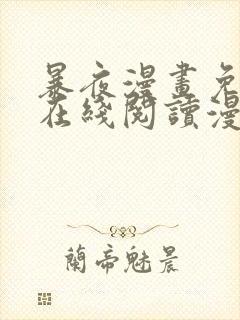 暴夜漫畫免
在綫閱讀漫
蘭帝魅晨